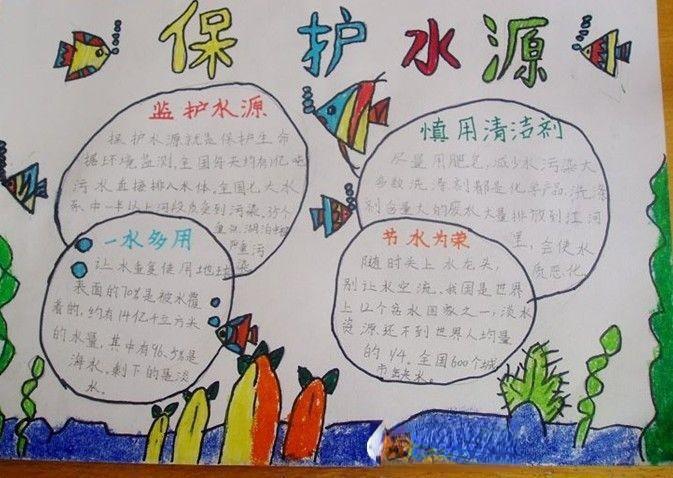 保护水源
监护水源
保护水源就是保护生命
据环境监测,全国每天约有1亿吨
污水直接排入水体.全国七大水
系中一半以上河段水质受到污染.35个
重点湖泊中
严重污
染
慎用清洁剂
尽量用肥皂,减少水污染大
多数洗涤剂都是化学产品,洗涤
剂含量大的废水大量排放到江河
里,会使水
质恶化
一水多用
让水重复使用地球
表面的70%是被水覆
着的,约有14亿千立方米
的水量,其中有96.5%是
海水.剩下的虽淡
水.
节水为荣
随时关上水龙头,
别让水空流.我国是世界
上12个贫水国家之一,淡水
资源还不到世界人均量
的1/4.全国600个城
市缺水.